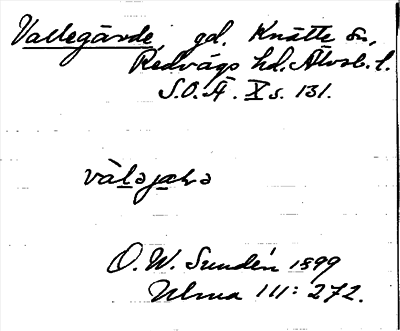 Vallegärde, gd. Knätte sn,
Redvägs hd. Älvsb. l.
S.O.Ä. X s. 131.
vàlajaḷa
O. W. Sundén 1899
Ulma 111: 272.